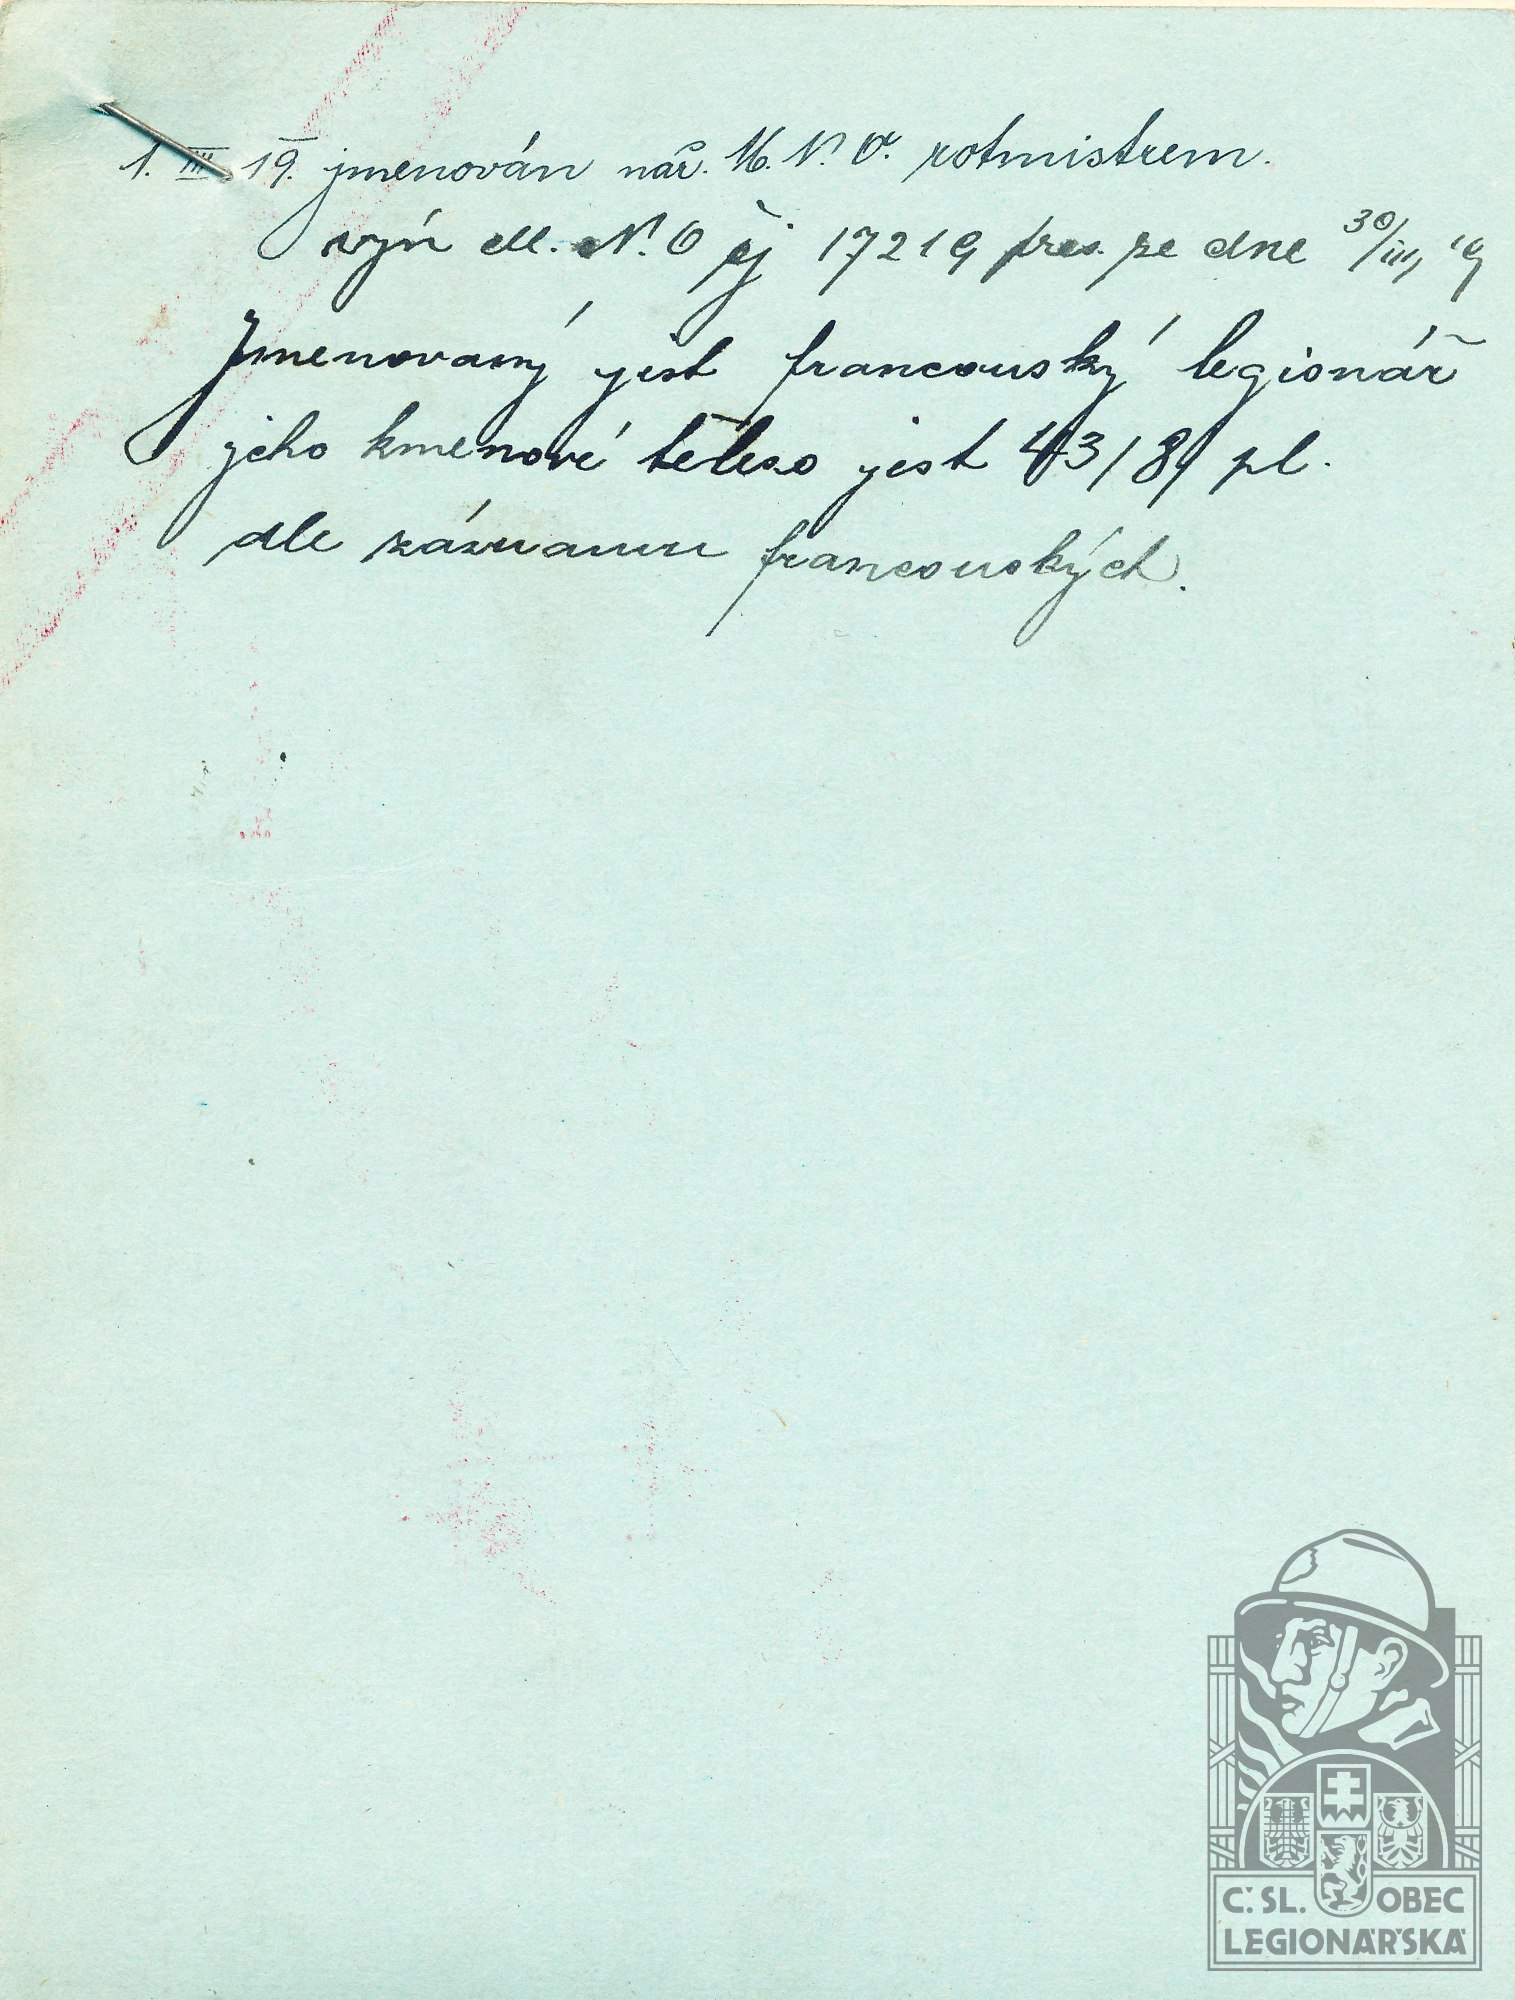 1. III. 19. jmenován nář. M. N. O. rotmistrem.
výn M. N. O čj 17219 pres. ze dne 30/III 19
Jmenovaný jest francouský legionář
jeho kmenové těleso jest 43/8 pl.
dle záznamu francouských.
Č.SL. OBEC
LEGIONÁŘSKÁ